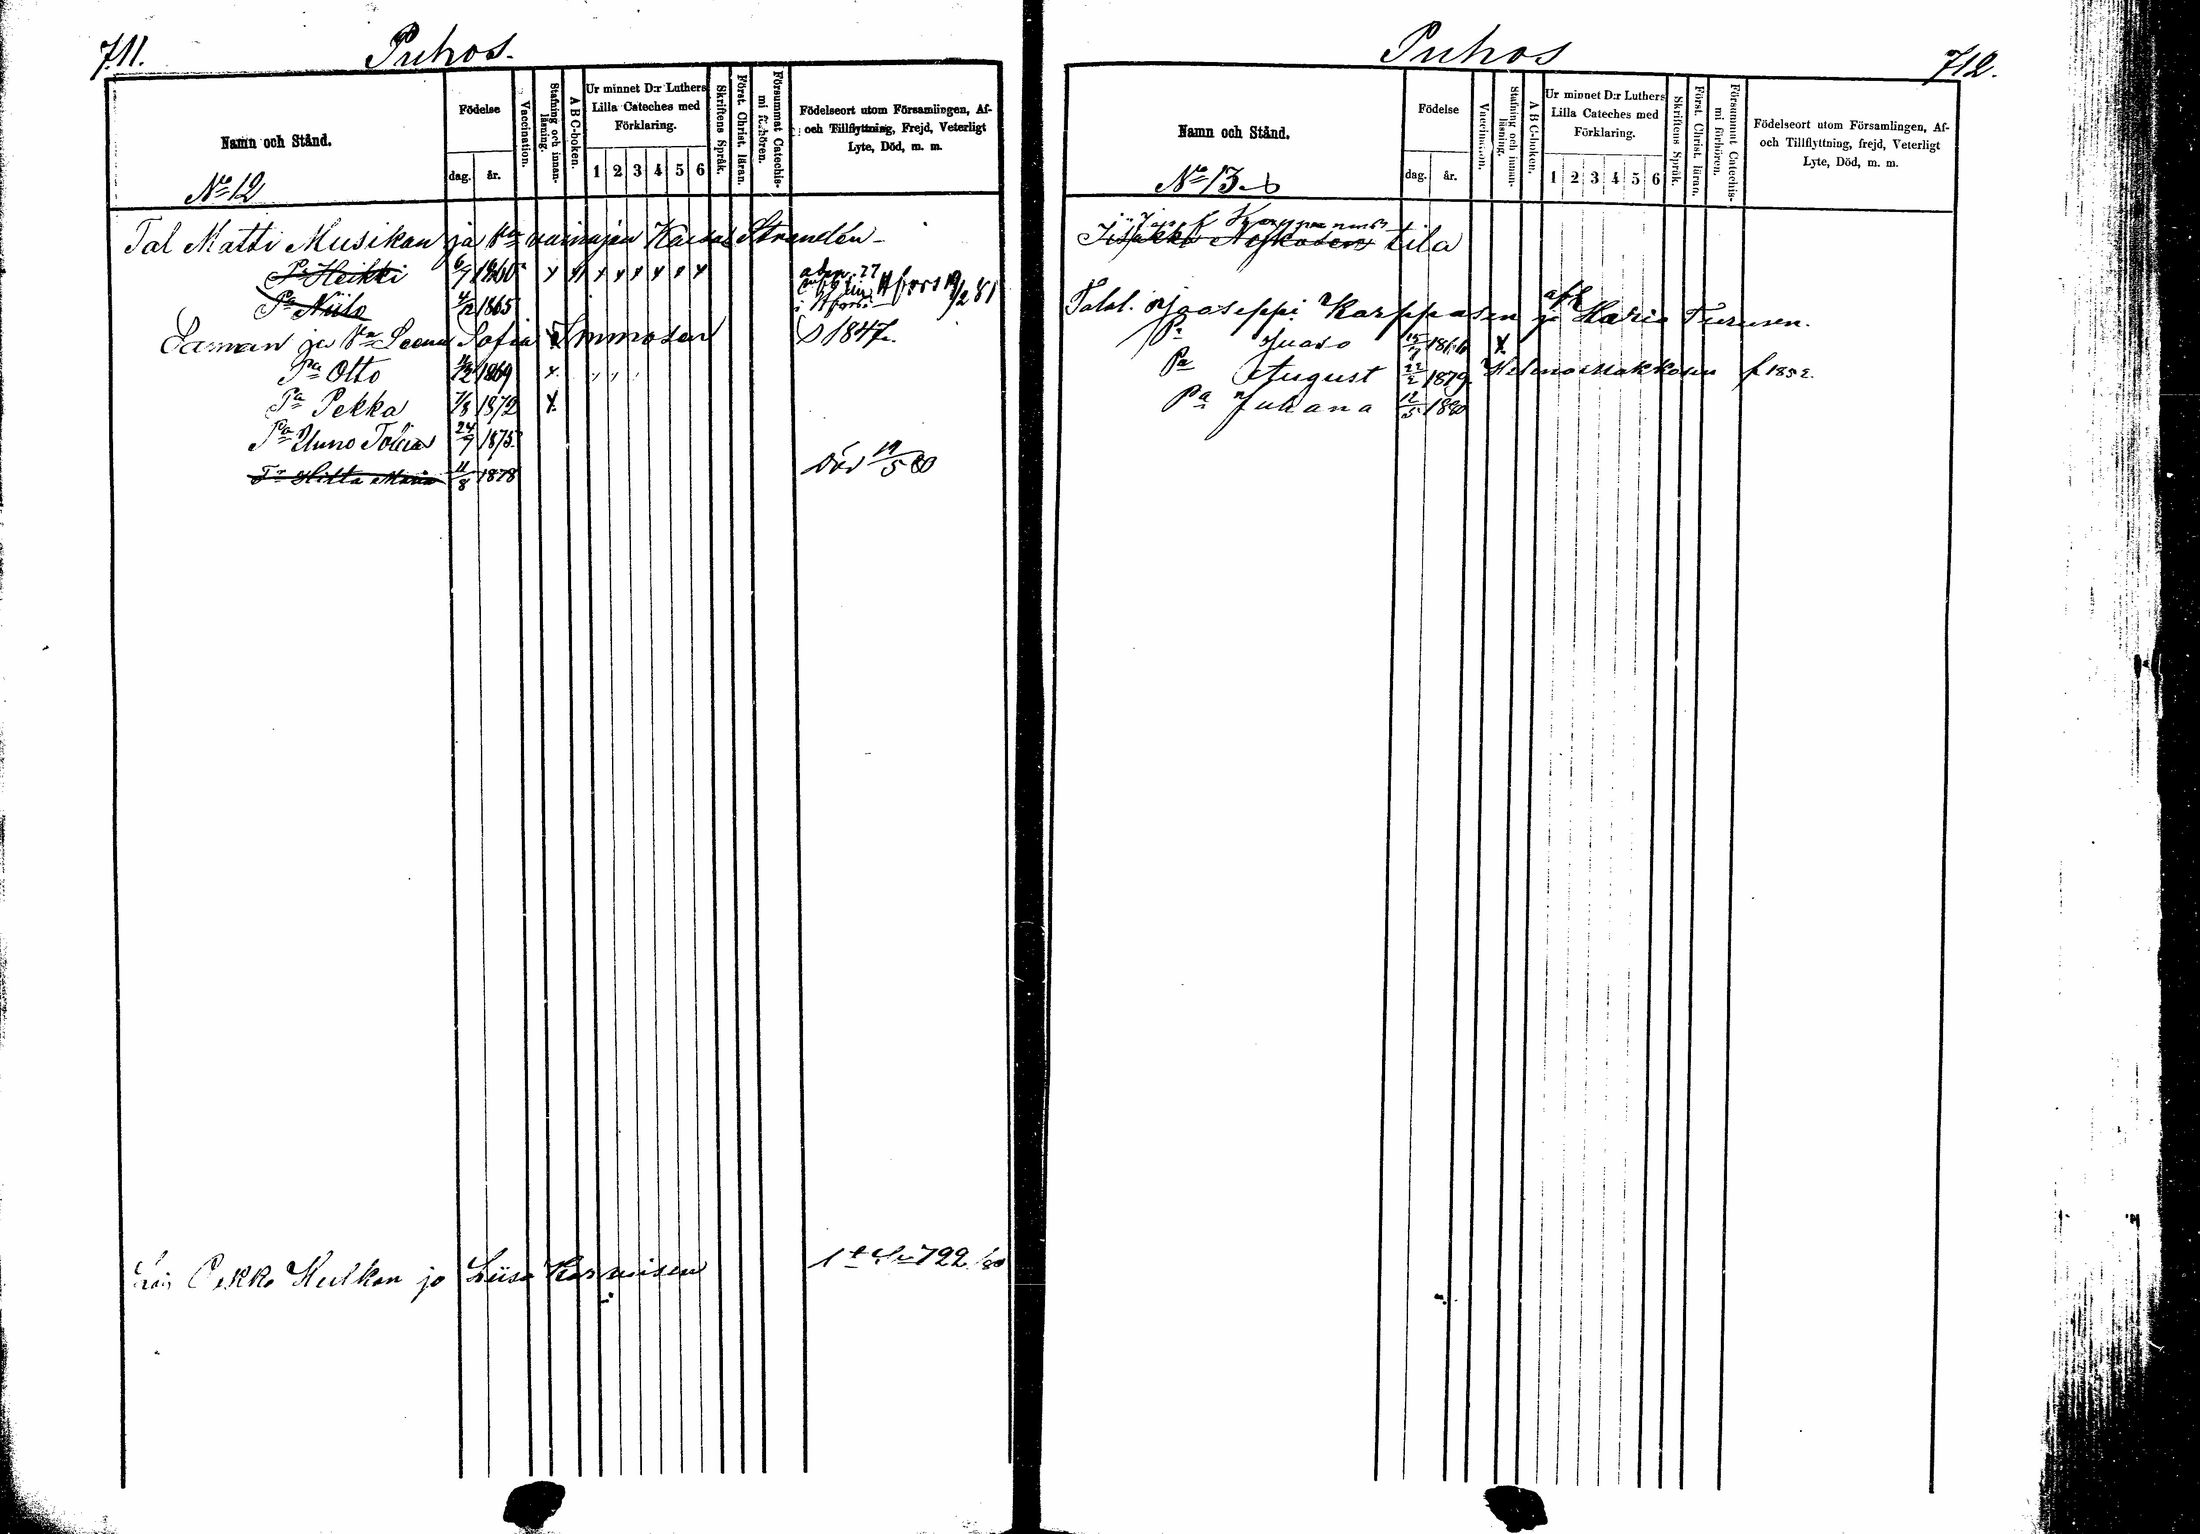 711.
Puhos.
Namn och Stånd.
No 12
Födelse
dag. år.
Vaccination.
Stafning och innanläsning.
ABC-boken.
Ur minnet D:r Luthers
Lilla Cateches med
Förklaring.
1 2 3 4 5 6
Skriftens Språk.
Först. Christ. läran.
Försummat Catechismi förhören.
Födelseort utom Församlingen, Af-
och Tillflyttning, Frejd, Veterligt
Lyte, Död, m. m.
Tal Matti Musikan ja Kaisa Strandén
Pa Heikki 6/7 1860 x x x x x x x x
Pa Niilo 1865
Hfors 81
Saman ja Va Leena Sofia Immosen 1847.
Pa Otto 1869 x
Pa Pekka 7/8 1872 x
Pa Uuno Tobias 24/7 1875
Tr Hilta Maria 11/8 1878 död 19/5 80
Pekka Kulkan ja Liisa Karvisen 722 /80
712.
Puhos
Namn och Stånd.
No 13
Födelse
dag. år.
Vaccination.
Stafning och innanläsning.
ABC-boken.
Ur minnet D:r Luthers
Lilla Cateches med
Förklaring.
1 2 3 4 5 6
Skriftens Språk.
Först. Christ. läran.
Försummat Catechismi förhören.
Födelseort utom Församlingen, Af-
och Tillflyttning, frejd, Veterligt
Lyte, Död, m. m.
Josef Karppanens
tila
Talol. Jooseppi Karppasen ja Maria Turusen.
Pa Juaso 15/7 1866 x
Pa August 22/2 1879 Helena Makkosen f 1852.
Pa Juhana 12/5 1880